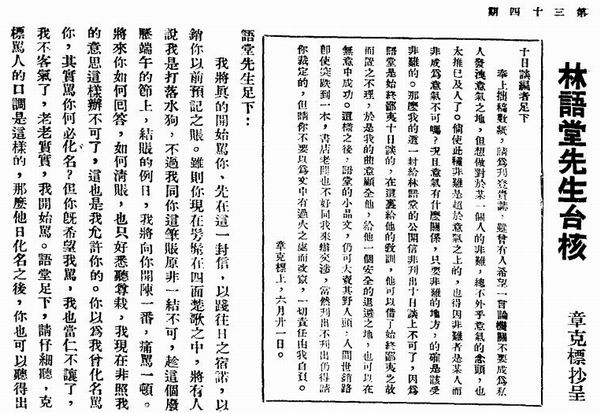 第三十四期
林語堂先生台核
章克標抄呈
十日談編者足下
奉上拙稿數紙,請爲刋登貴誌,雖曾有人希望「言論機關不要成爲私
人發洩意氣之地,但想做對於某一個人的非難,總不外乎意氣的念頭,也
太推已及人了。倘使此種非難是超於意氣之上的,也得因非難者是某人而
非成爲意氣不可嗎?況且意氣有什麼關係,只要非難的地方,的確是該受
非難的。那麼我的這一封給林語堂的公開信非刋出十日談上不可了,因爲
語堂是始終鄙夷十日談的,在這裏給他的敎訓,他可以借了始終鄙夷之故
而置之不理,於是我的曲意顧全他,給他一個安全的退避之地,也可以在
無意中成功。這樣之後,語堂的小品文,仍可大賣其野人頭;人間世銷路
即使突跌到一本,書店老闆也不好同我來辦交涉,當然刋出不刋出仍得請
你裁定的,但請你不要以爲文中有過火之處而改竄,一切責任由我自負。
章克標上,六月廿一日。
語堂先生足下:
我將眞的開始罵你、先在這一封信,以踐往日之宿諾,以
銷你以前預記之賬。雖則你現在勞嵠在四面楚歌之中,將有人
說我是打落水狗,不過我同你這筆賬原非一結不可,趁這個廢
歷端午的節上,結賬的例日,我將向你開陳一番,痛罵一頓。
將來你如何回答,如何淸賬,也只好悉聽尊裁,我現在非照我
的意思這樣辦不可了,這也是我允許你的。你以爲我曾化名罵
你,其實罵你何必化名?但你旣希望我罵,我也當仁不讓了,
我不客氣了,老老實實,我開始罵。語堂足下,請仔細聽,克
標罵人的口調是這樣的,那麼他日化名之後,你也可以聽得出